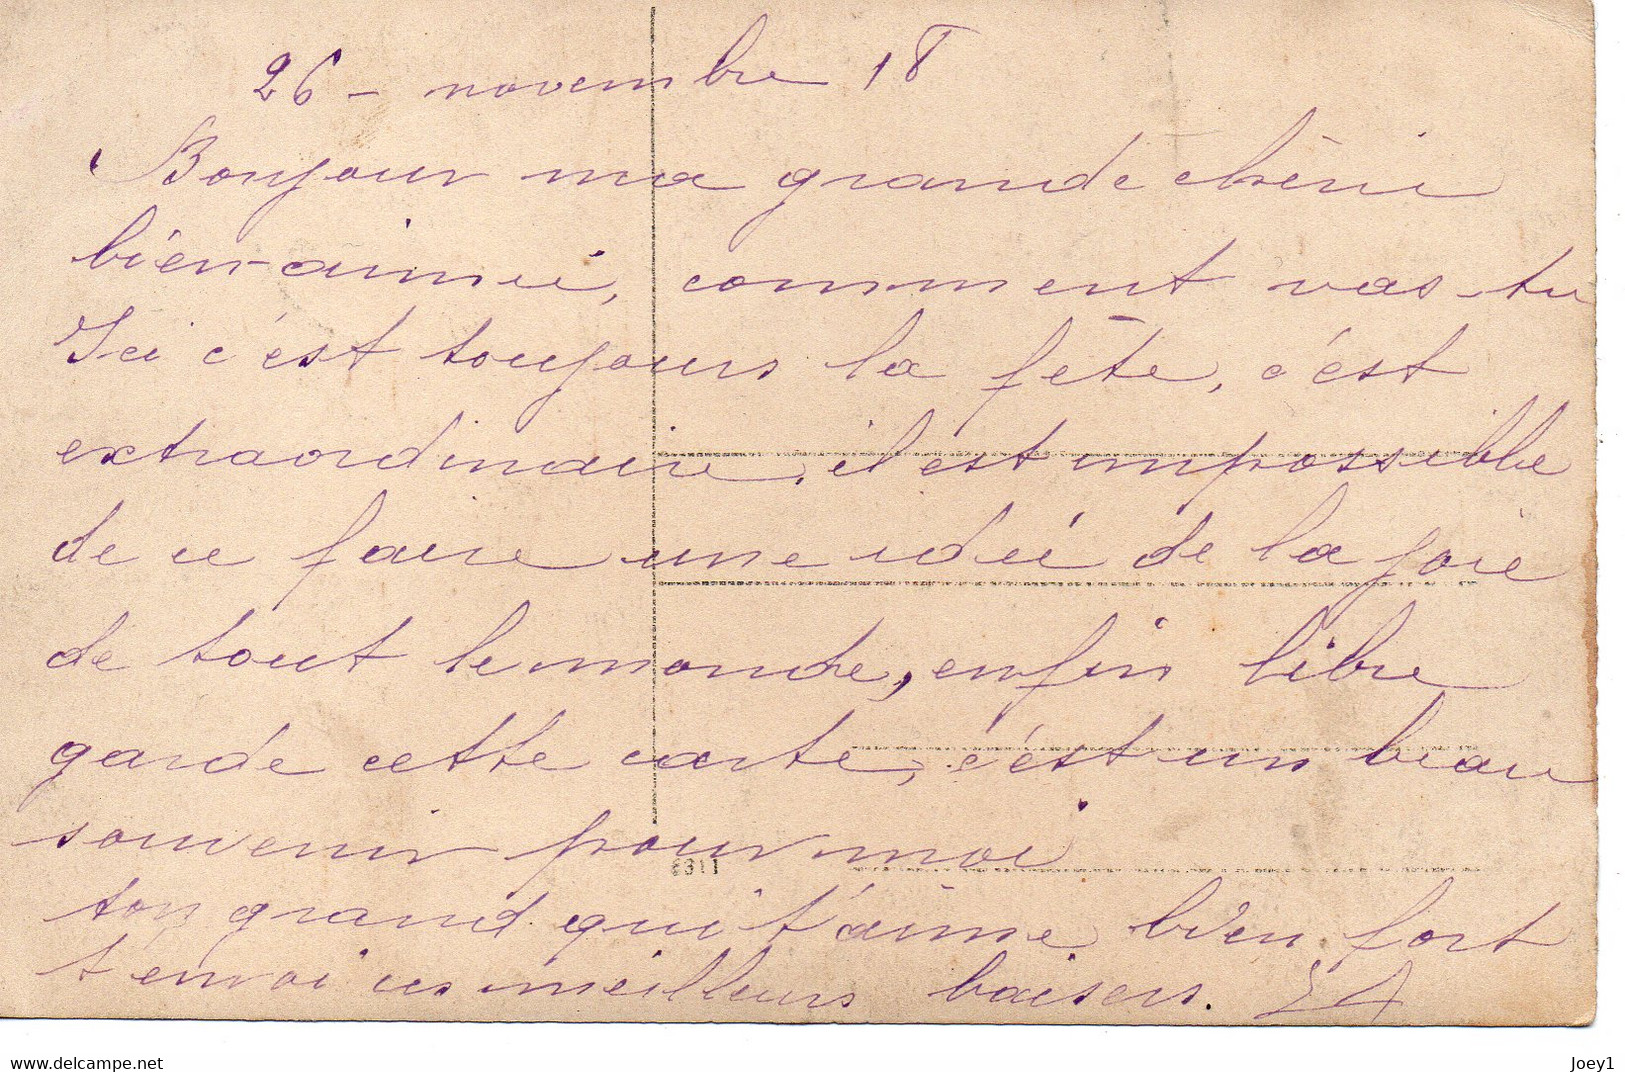 26 - novembre 18
Bonjour ma grande chérie
bien-aimée, comment vas-tu
Ici c'est toujours la fête, c'est
extraordinaire, il est impossible
de ce faire une idée de la joie
de tout le monde, enfin libre
garde cette carte, c'est un beau
souvenir pour moi
6311
ton grand qui t'aime bien fort
t'envoi ces meilleurs baisers.
Joey1
www.delcampe.net